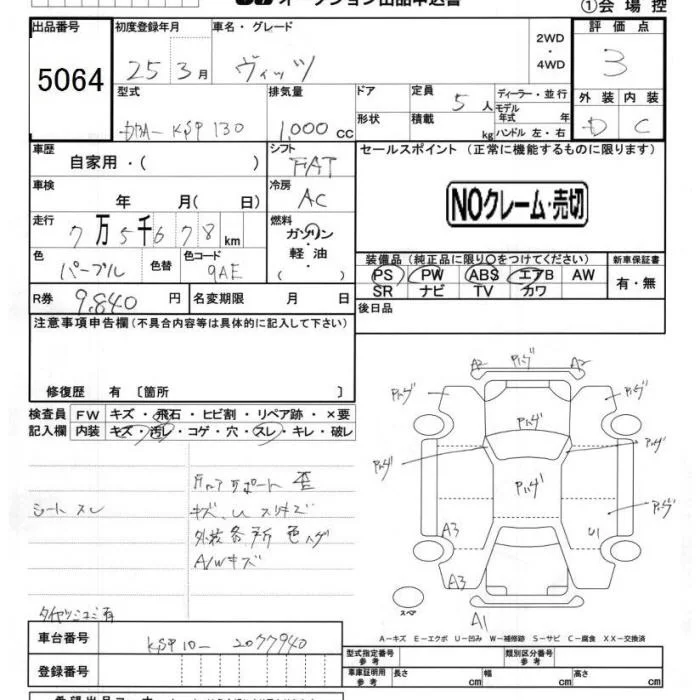 オークション出品申込書
①会 場 控
出品番号 初度登録年月 車名・グレード 2WD ・ 4WD 評 価 点
5064 25 3月 ヴィッツ 3
型式 排気量 ドア 定員 5人 ディーラー・並行 外 装 内 装
DBA-KSP 130 1,000 cc 形状 積載 kg モデル年式 年 ハンドル 左・右 D C
車歴 シフト セールスポイント (正常に機能するものに限ります)
自家用・( ) FAT
車検 冷房
年 月( 日) AC NOクレーム・売切
走行 燃料
7万5千678km ガソリン・軽油・( )
色 色替 色コード 装備品(純正品に限り○をつけてください) 新車保証書
パープル 9AE PS PW ABS エアB AW 有・無
SR ナビ TV カワ
R券 9,840 円 名変期限 月 日 後日品
注意事項申告欄(不具合内容等は具体的に記入して下さい)
修復歴 有 〔箇所 〕
検査員 FW キズ・飛石・ヒビ割・リペア跡・×要
記入欄 内装 キズ・汚レ・コゲ・穴・スレ・キレ・破レ
シート スレ
キズ、U スリキズ
外板各所 色ハゲ
A/Wキズ
A2 A2
A3 U1
A3
A1
スペア
A−キズ E−エクボ U−凹み W−補修跡 S−サビ C−腐食 XX−交換済
車台番号 KSP 10- 2077940
登録番号
型式指定番号 参考 類別区分番号 参考
車庫証明用 参考 長さ cm 幅 cm 高さ cm